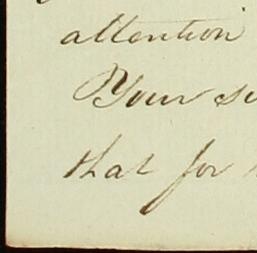 attention
Your su
that for